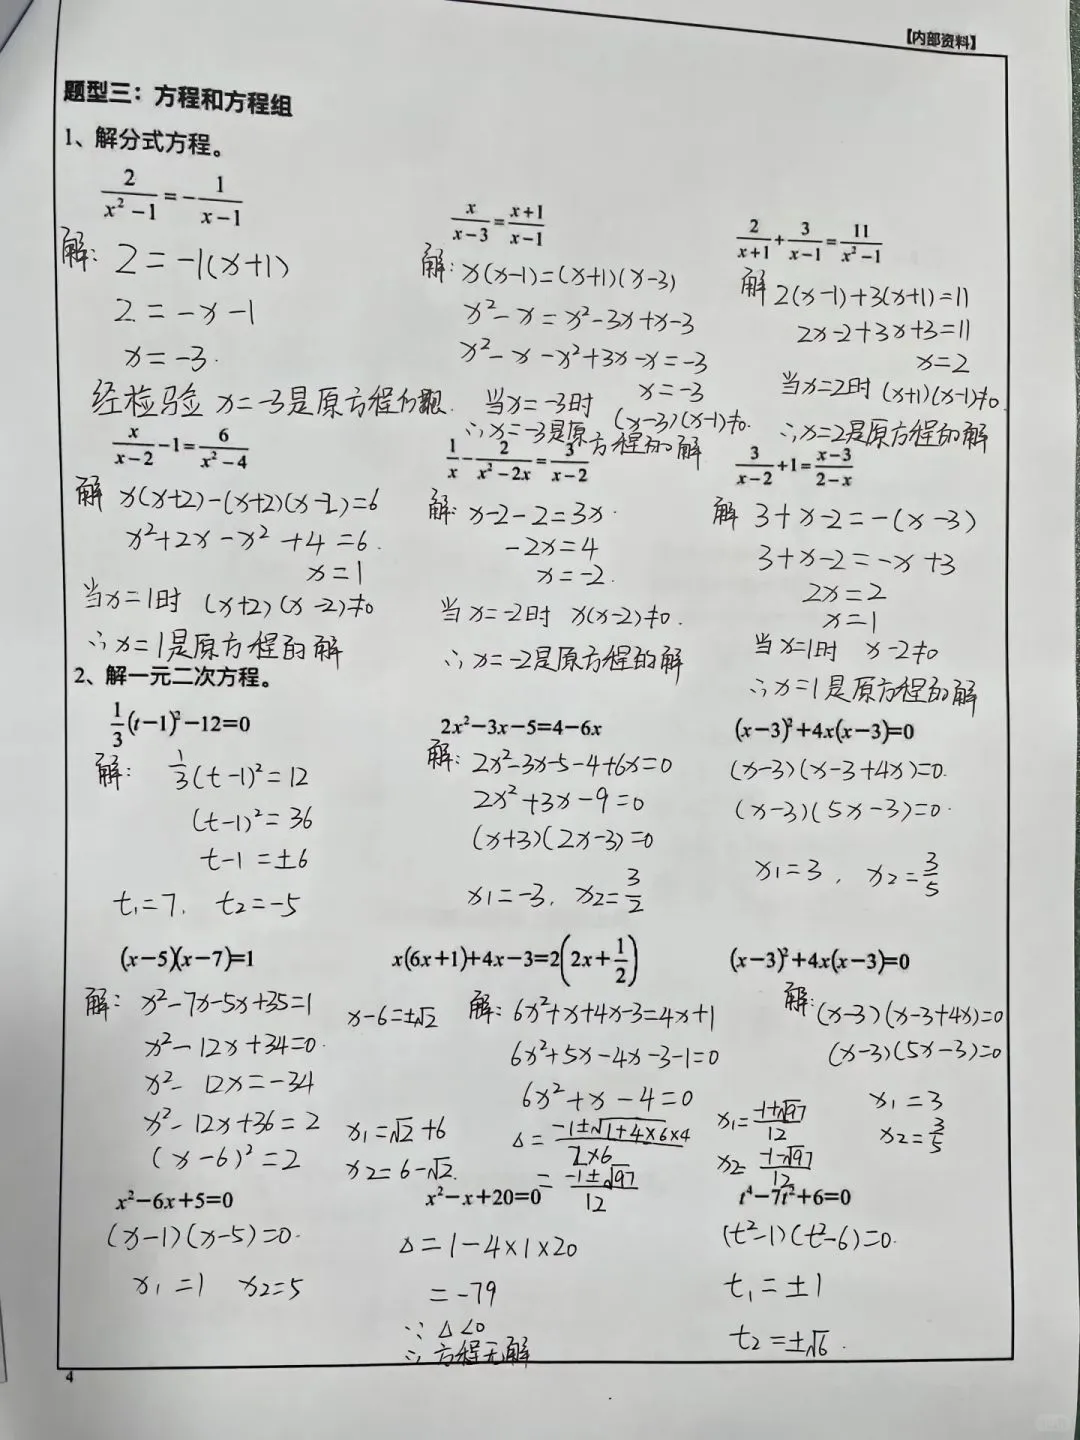 【内部资料】
题型三：方程和方程组
1、解分式方程。
2/(x²-1)=-1/(x-1)
解: 2=-1(x+1)
2=-x-1
x=-3.
经检验 x=-3是原方程的
x/(x-3)=(x+1)/(x-1)
解: x(x-1)=(x+1)(x-3)
x²-x=x²-3x+x-3
x²-x-x²+3x-x=-3
x=-3
当x=-3时 (x-3)(x-1)≠0.
∴x=-3是原方程的解
2/(x+1)+3/(x-1)=11/(x²-1)
解 2(x-1)+3(x+1)=11
2x-2+3x+3=11
x=2
当x=2时 (x+1)(x-1)≠0
∴x=2是原方程的解
x/(x-2)-1=6/(x²-4)
解 x(x+2)-(x+2)(x-2)=6
x²+2x-x²+4=6.
x=1
当x=1时 (x+2)(x-2)≠0
∴x=1是原方程的解
1/x-2/(x²-2x)=3/(x-2)
解: x-2-2=3x.
-2x=4
x=-2.
当x=-2时 x(x-2)≠0.
∴x=-2是原方程的解
3/(x-2)+1=(x-3)/(2-x)
解 3+x-2=-(x-3)
3+x-2=-x+3
2x=2
x=1
当x=1时 x-2≠0
∴x=1是原方程的解
2、解一元二次方程。
1/3(t-1)²-12=0
解: 1/3(t-1)²=12
(t-1)²=36
t-1=±6
t₁=7. t₂=-5
2x²-3x-5=4-6x
解: 2x²-3x-5-4+6x=0
2x²+3x-9=0
(x+3)(2x-3)=0
x₁=-3, x₂=3/2
(x-3)²+4x(x-3)=0
(x-3)(x-3+4x)=0.
(x-3)(5x-3)=0.
x₁=3, x₂=3/5
(x-5)(x-7)=1
解: x²-7x-5x+35=1
x²-12x+34=0.
x²-12x=-34
x²-12x+36=2
(x-6)²=2
x-6=±√2
x₁=√2+6
x₂=6-√2.
x(6x+1)+4x-3=2(2x+1/2)
解: 6x²+x+4x-3=4x+1
6x²+5x-4x-3-1=0
6x²+x-4=0
Δ=(-1±√(1+4×6×4))/(2×6)
=(-1±√97)/12
x₁=(-1+√97)/12
x₂=(-1-√97)/12
(x-3)²+4x(x-3)=0
解: (x-3)(x-3+4x)=0
(x-3)(5x-3)=0
x₁=3
x₂=3/5
x²-6x+5=0
(x-1)(x-5)=0.
x₁=1 x₂=5
x²-x+20=0
Δ=1-4×1×20
=-79
∵Δ<0
∴方程无解
t⁴-7t²+6=0
(t²-1)(t²-6)=0.
t₁=±1
t₂=±√6.
4